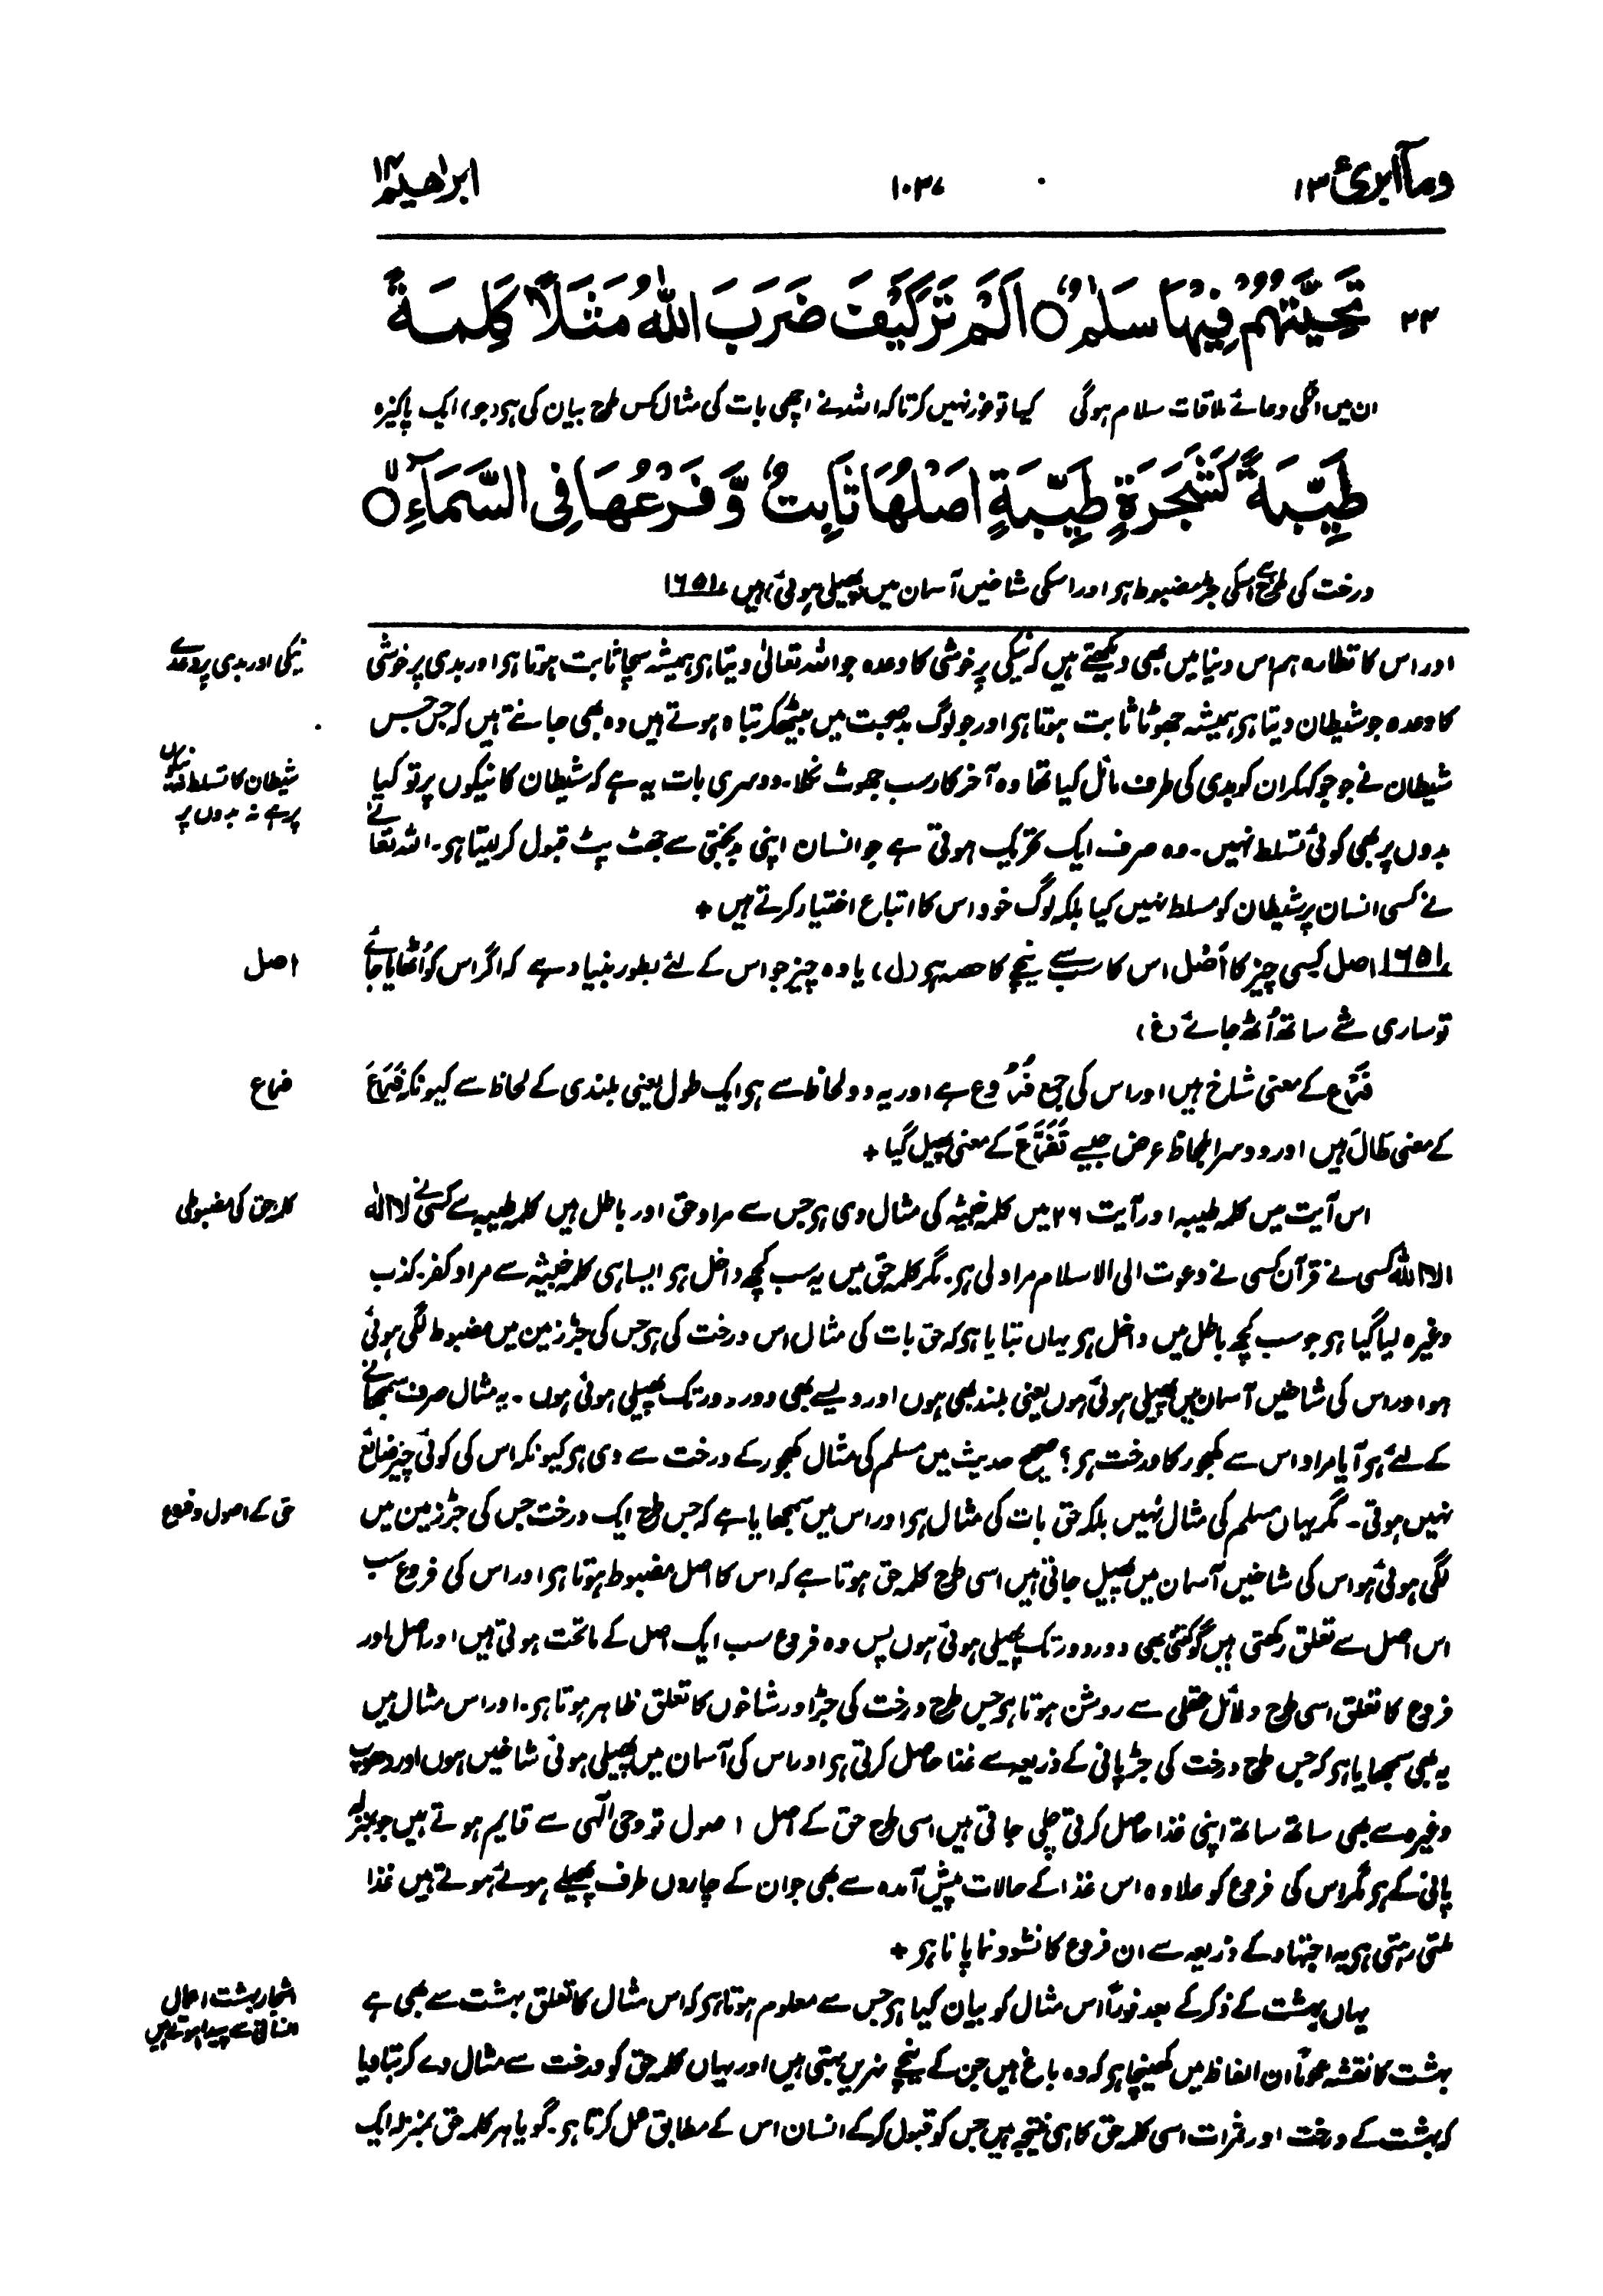 ومآ ابرئ ١٣
١٠٣٧
ابراهيم ١٤
٢٤
تَحِيَّتُهُمْ فِيْهَا سَلٰمٌ ○ اَلَمْ تَرَ كَيْفَ ضَرَبَ اللّٰهُ مَثَلًا كَلِمَةً
ان میں انکی دعائے ملاقات سلام ہوگی کیا تو غور نہیں کرتا کہ اللہ نے اچھی بات کی مثال کس طرح بیان کی ہی (جو) ایک پاکیزہ
طَيِّبَةً كَشَجَرَةٍ طَيِّبَةٍ اَصْلُهَا ثَابِتٌ وَّ فَرْعُهَا فِى السَّمَآءِ ○
درخت کی طرح ہے اسکی جڑ مضبوط ہر اور اسکی شاخیں آسمان میں (پھیلی ہوئی) ہیں ١٦٥١
اور اس کا نظارہ ہم اس دنیا میں بھی دیکھتے ہیں کہ نیکی پر خوشی کا وعدہ جو اللہ تعالیٰ دیتا ہر ہمیشہ سچا ثابت ہوتا ہر اور بدی پر خوشی
نیکی اور بدی پر وعدے
کا وعدہ جو شیطان دیتا ہر ہمیشہ جھوٹا ثابت ہوتا ہر اور جو لوگ بد صحبت میں بیٹھکر تباہ ہوتے ہیں وہ بھی جانتے ہیں کہ جس جس
شیطان نے جو جو کہکر ان کو بدی کی طرف مائل کیا تھا وہ آخر کار سب جھوٹ نکلا۔ دوسری بات یہ ہے کہ شیطان کا نیکوں پر تو کیا
شیطان کا تسلط نہ نیکوں
پر ہے نہ بدوں پر
بدوں پر بھی کوئی تسلط نہیں۔ وہ صرف ایک تحریک ہوتی ہے جو انسان اپنی بدبختی سے جھٹ پٹ قبول کر لیتا ہر۔ اللہ تعالےٰ
نے کسی انسان پر شیطان کو مسلط نہیں کیا بلکہ لوگ خود اس کا اتباع اختیار کرتے ہیں +
١٦٥١ اصل کسی چیز کا اَصْل اس کا سب سے نیچے کا حصہ ہر (ل) یا وہ چیز جو اس کے لئے بطور بنیاد ہے کہ اگر اس کو اُٹھایا جائے
اصل
تو ساری شے ساتھ اُٹھ جائے (غ)
فَرْع کے معنی شاخ ہیں اور اس کی جمع فُرُوع ہے اور یہ دو لحاظ سے ہر ایک طول یعنی بلندی کے لحاظ سے کیونکہ فَرَعَ
فرع
کے معنی طَالَ ہیں اور دوسرا بلحاظ عرض جیسے تَفَرَّعَ کے معنی پھیل گیا +
اس آیت میں کلمہ طیبہ اور آیت ٢٦ میں کلمہ خبیثہ کی مثال دی ہر جس سے مراد حق اور باطل ہیں کلمہ طیبہ سے کسی نے لا الٰہ
کلمہ حق کی مضبوطی
الا اللہ کسی نے قرآن کسی نے دعوت الی الاسلام مراد لی ہر۔ مگر کلمہ حق میں یہ سب کچھ داخل ہر ایسا ہی کلمہ خبیثہ سے مراد کفر۔ کذب
وغیرہ لیا گیا ہر جو سب کچھ باطل میں داخل ہر یہاں بتایا ہر کہ حق بات کی مثال اس درخت کی ہر جس کی جڑ زمین میں مضبوط لگی ہوئی
ہو اور اس کی شاخیں آسمان میں پھیلی ہوئی ہوں یعنی بلند بھی ہوں اور ویسے بھی دور دور تک پھیلی ہوئی ہوں۔ یہ مثال صرف سمجھانے
کے لئے ہر آیا مراد اس سے کھجور کا درخت ہر؟ صحیح حدیث میں مسلم کی مثال کھجور کے درخت سے دی ہر کیونکہ اس کی کوئی چیز ضائع
نہیں ہوتی۔ مگر یہاں مسلم کی مثال نہیں بلکہ حق بات کی مثال ہر اور اس میں سمجھایا ہے کہ جس طرح ایک درخت جس کی جڑ زمین میں
حق کے اصول و فروع
لگی ہوئی ہو اس کی شاخیں آسمان میں پھیل جاتی ہیں اسی طرح کلمہ حق ہوتا ہے کہ اس کا اصل مضبوط ہوتا ہر اور اس کی فروع سب
اس اصل سے تعلق رکھتی ہیں گو کتنی بھی دور دور تک پھیلی ہوئی ہوں پس وہ فروع سب ایک اصل کے ماتحت ہوتی ہیں اور اصل اور
فروع کا تعلق اسی طرح دلائل عقلی سے روشن ہوتا ہر جس طرح درخت کی جڑ اور شاخوں کا تعلق ظاہر ہوتا ہر۔ اور اس مثال میں
یہ بھی سمجھایا ہر کہ جس طرح درخت کی جڑ پانی کے ذریعہ سے غذا حاصل کرتی ہر اور اس کی آسمان میں پھیلی ہوئی شاخیں ہوں اور دھوپ
وغیرہ سے بھی ساتھ ساتھ اپنی غذا حاصل کرتی چلی جاتی ہیں اسی طرح حق کے اصل اصول تو وحی الٰہی سے قایم ہوتے ہیں جو بمنزلہ
پانی کے ہر مگر اس کی فروع کو علاوہ اس غذا کے حالات پیش آمدہ سے بھی جو ان کے چاروں طرف پھیلے ہوئے ہوتے ہیں غذا
ملتی رہتی ہر یہ اجتہاد کے ذریعہ سے ان فروع کا نشوونما پانا ہر +
یہاں بہشت کے ذکر کے بعد فوراً اس مثال کو بیان کیا ہر جس سے معلوم ہوتا ہر کہ اس مثال کا تعلق بہشت سے بھی ہے
اشجار بہشت اعمال
انسانی سے پیدا ہوتے ہیں
بہشت کا نقشہ عموماً ان الفاظ میں کھینچا ہر کہ وہ باغ ہیں جن کے نیچے نہریں بہتی ہیں اور یہاں کلمہ حق کو درخت سے مثال دے کر بتا دیا
کہ بہشت کے درخت اور ثمرات اسی کلمہ حق کا ہی نتیجہ ہیں جس کو قبول کر کے انسان اس کے مطابق عمل کرتا ہر۔ گویا ہر کلمہ حق بمنزلہ ایک